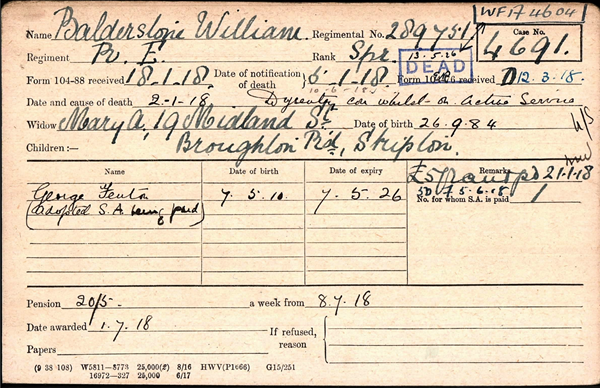 WF17 4604
Name Balderstone William Regimental No. 289751
Case No. 4691.
Regiment R. E. Rank Spr. 13.5.26
DEAD
Form 104-88 received 18.1.18. Date of notification of death 5-1-18 Form 104-76 received D 12.3.18.
Date and cause of death 2-1-18 Dysentry whilst on Active Service
Widow Mary A, 19 Midland St Date of birth 26.9.84
Children:— Broughton Rd, Skipton.
Name Date of birth Date of expiry Remarks
£5 Grant pd 21-1-18
George Fenton 7.5.10. 7.5.26 5.6.18
No. for whom S.A. is paid 1
(adopted S.A. being paid)
Pension 20/5- a week from 8.7.18
Date awarded 1.7.18 If refused, reason
Papers
(9 38 108) W5811—8773 25,000(2) 8/16 HWV(P1066) G15/251
16972—327 25,000 6/17